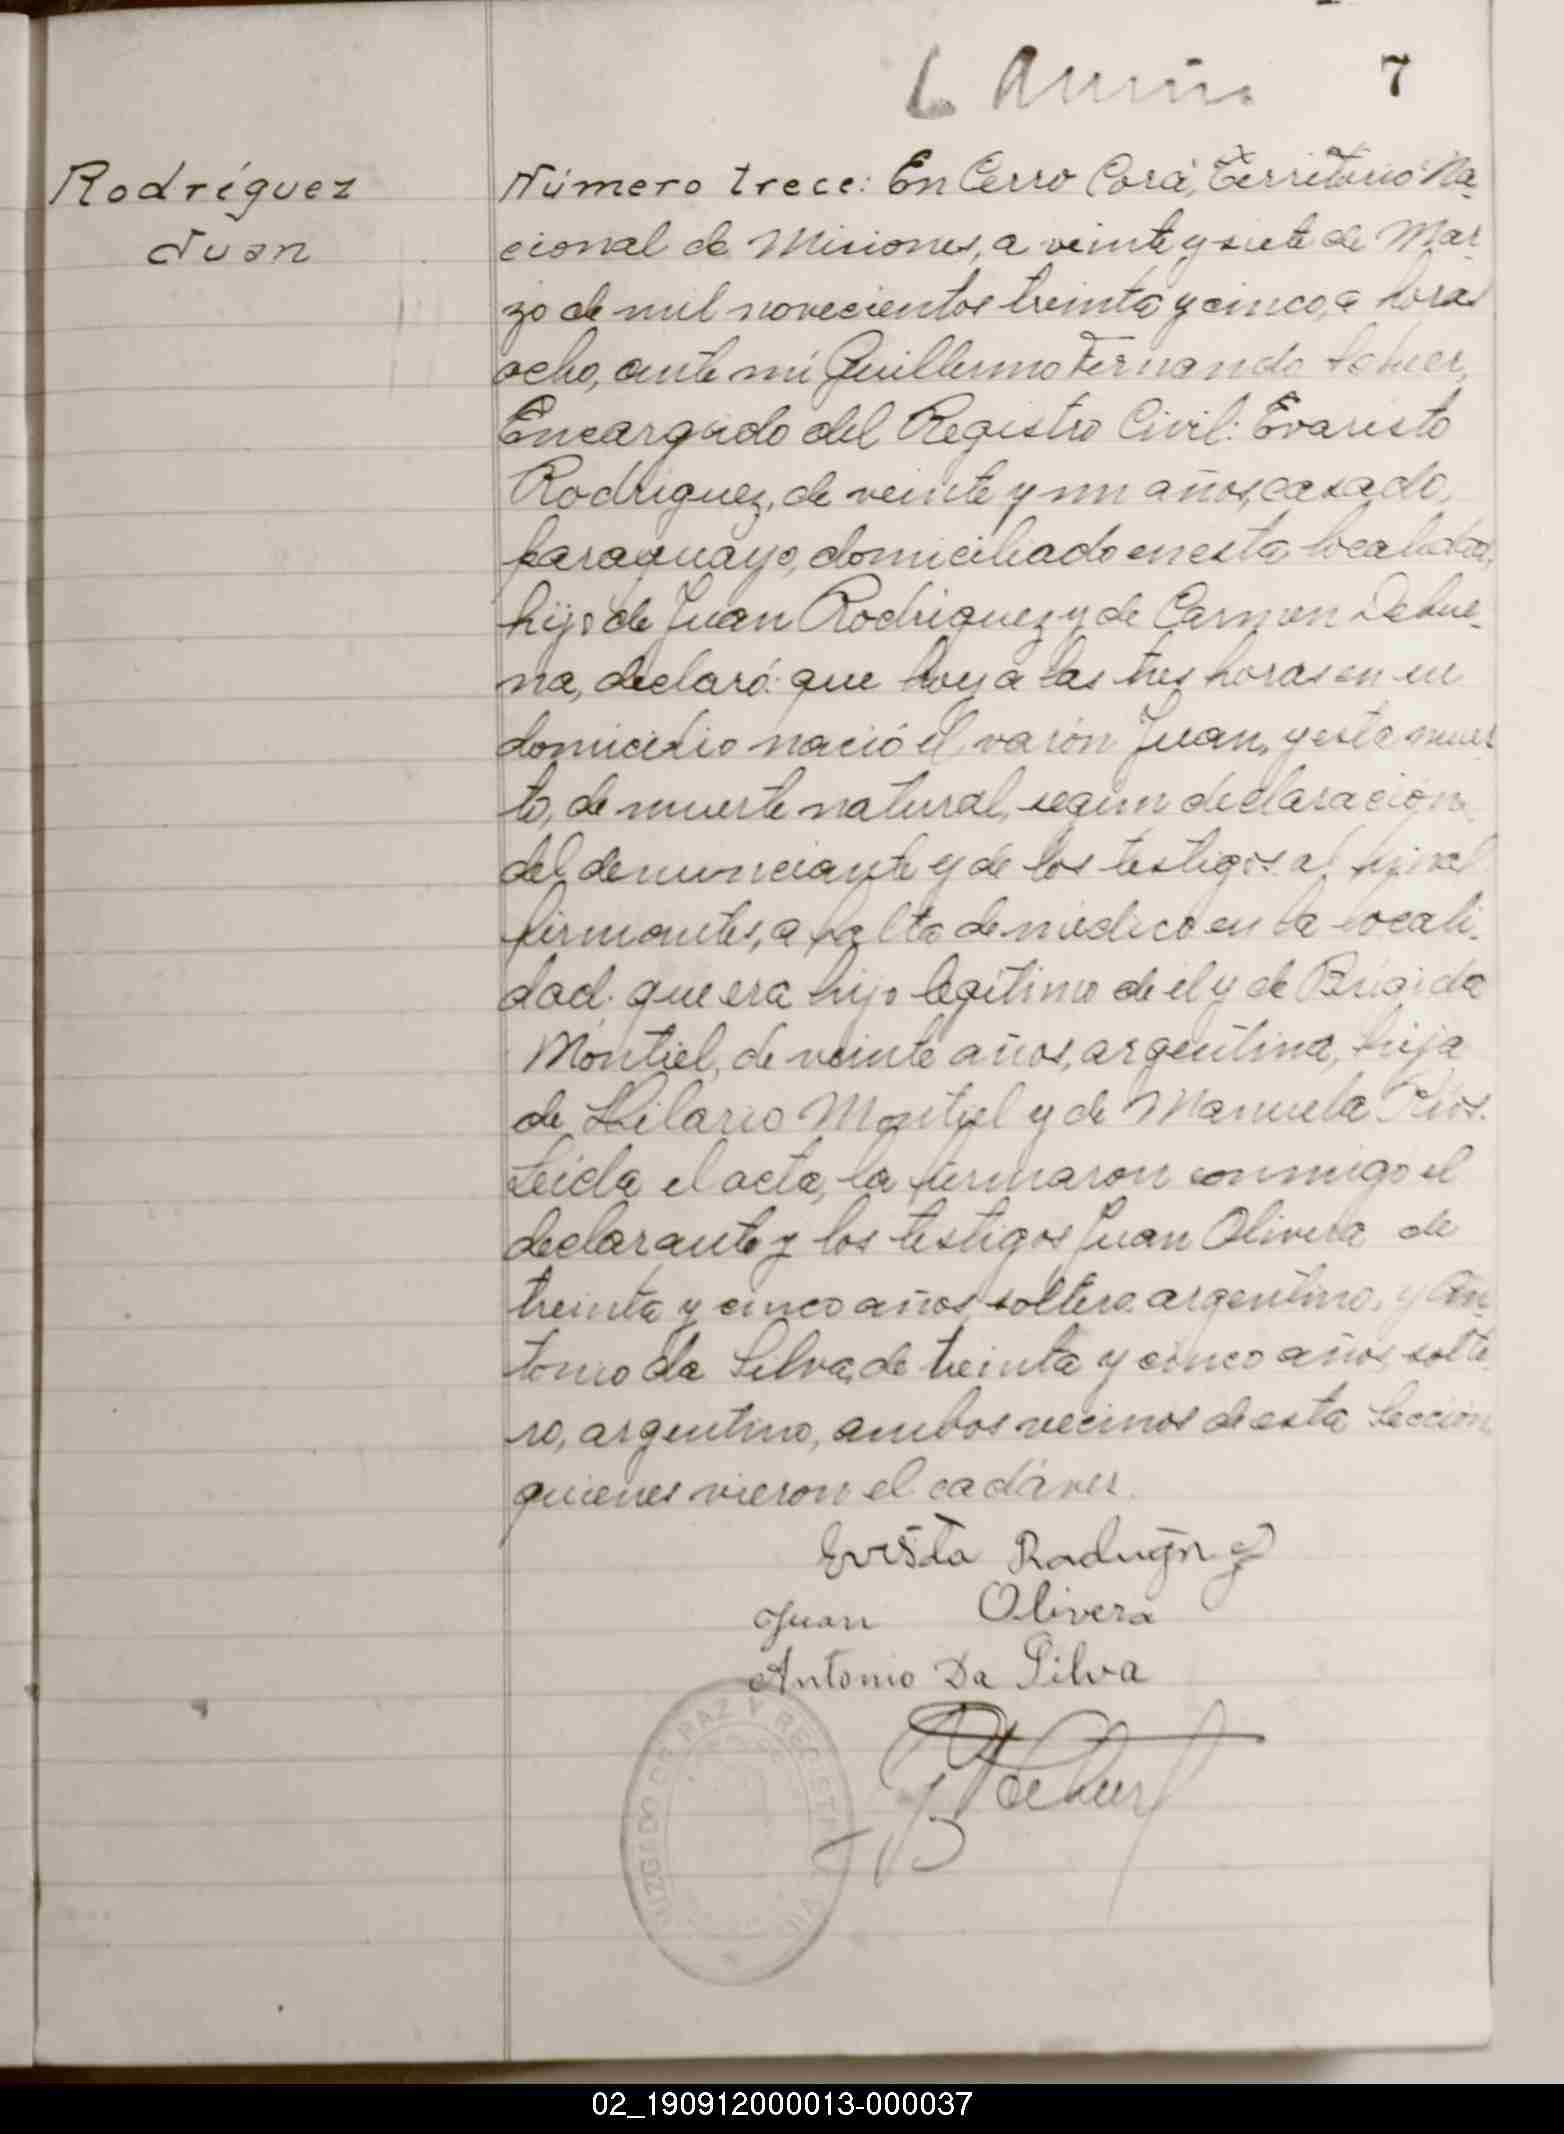 7
Rodríguez
Juan
Número trece: En Cerro Corá, Territorio Na-
cional de Misiones, a veinte y siete de Mar-
zo de mil novecientos treinta y cinco, a horas
ocho, ante mí Guillermo Fernando
Encargado del Registro Civil: Evaristo
Rodriguez, de veinte y un años, casado,
paraguayo, domiciliado en esta localidad,
hijo de Juan Rodriguez y de Carmen
na, declaró: que hoy a las tres horas en su
domicilio nació el varón Juan, y esta muer-
to, de muerte natural, segun declaracion
del denunciante y de los testigos al final
firmantes, a falta de médico en la locali-
dad: que era hijo legítimo de él y de Brigida
Montiel, de veinte años, argentina, hija
de Hilario Montiel y de Manuela Rios.
Leída el acta, la firmaron conmigo el
declarante y los testigos Juan Olivera de
treinta y cinco años, soltero, argentino, y An-
tonio da Silva, de treinta y cinco años, solte-
ro, argentino, ambos vecinos de esta Seccion
quienes vieron el cadáver.
Juan Olivera
Antonio Da Silva
JUZGADO DE PAZ Y REGISTRO
02_190912000013-000037